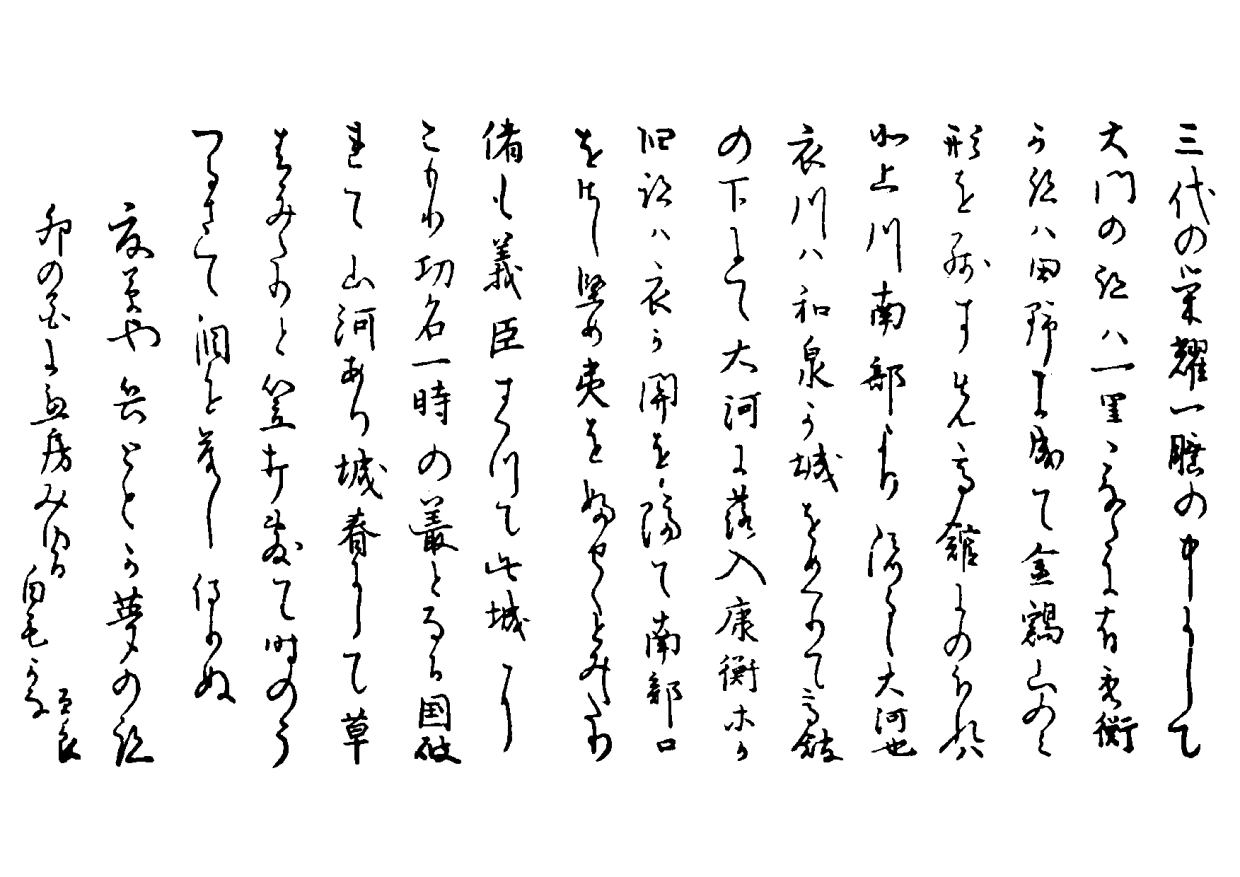 三代の栄耀一睡の中にして
大門の跡ハ一里こなたに有秀衡
か跡ハ田野に成て金鶏山のミ
形を残す先高館にのほれハ
北上川南部より流るゝ大河也
衣川ハ和泉か城をめくりて高館
の下にて大河に落入康衡等か
旧跡ハ衣か関を隔て南部口
をさし堅め夷をふせくとみえたり
偖も義臣すくつて此城にこ
こもり功名一時の叢となる国破
れて山河あり城春にして草
青みたりと笠打敷て時のう
つるまて泪を落し侍りぬ
夏草や兵ともか夢の跡
卯の花に兼房みゆる白毛かな 曽良